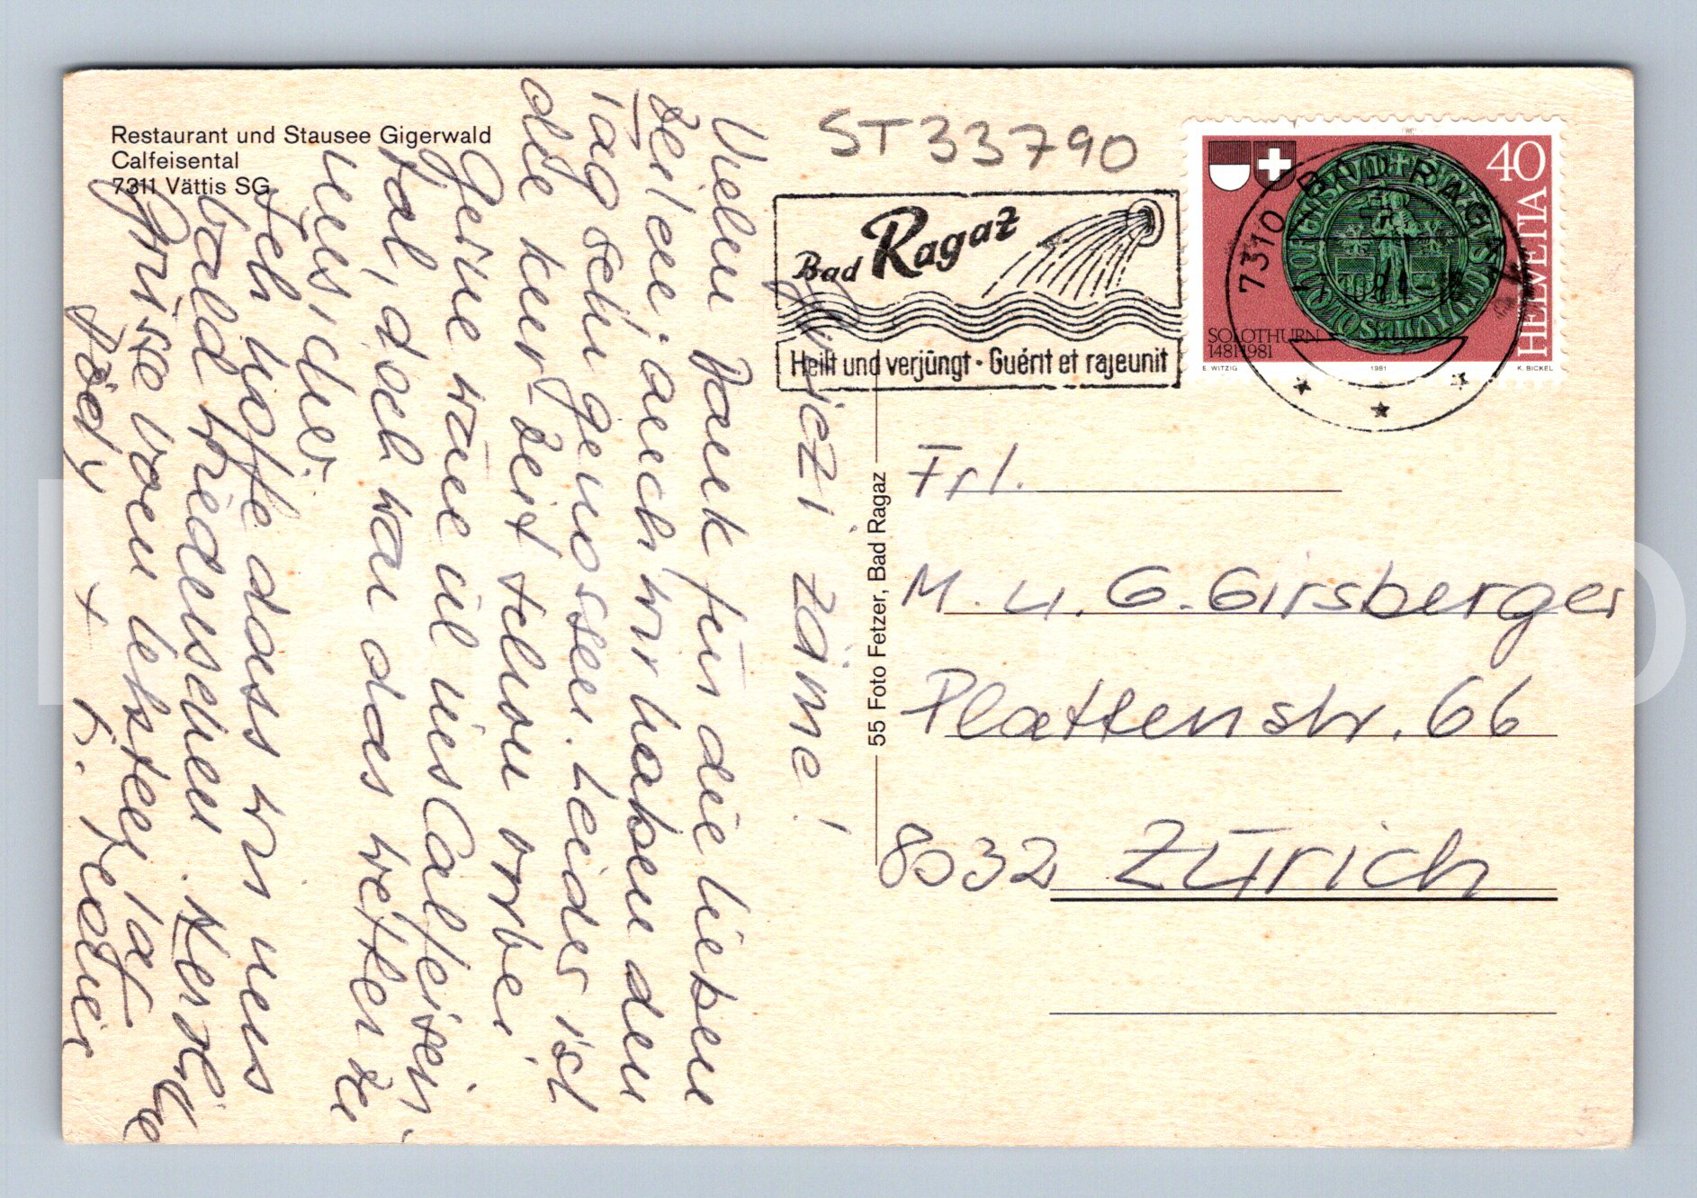 Restaurant und Stausee Gigerwald
Calfeisental
7311 Vättis SG
ST33790
Bad Ragaz
Heilt und verjüngt · Guérit et rajeunit
7310 BAD RAGAZ
40
HELVETIA
SOLOTHURN
1481 1981
E. WITZIG
1981
K. BICKEL
zäme!
Vielen Dank für die lieben
Zeilen; auch wir haben den
Tag sehr genossen. Leider ist
die Kur-Zeit schon vorbei
Gerne wäre ich ins Calfeisen-
tal, doch war das Wetter zu
unsicher.
Ich hoffe dass wir uns
bald wiedersehen. Herzliche
Grüsse vom letzten Tat
Dödy + F.
55 Foto Fetzer, Bad Ragaz
Frl.
M. u. G. Girsberger
Plattenstr. 66
8032 Zürich